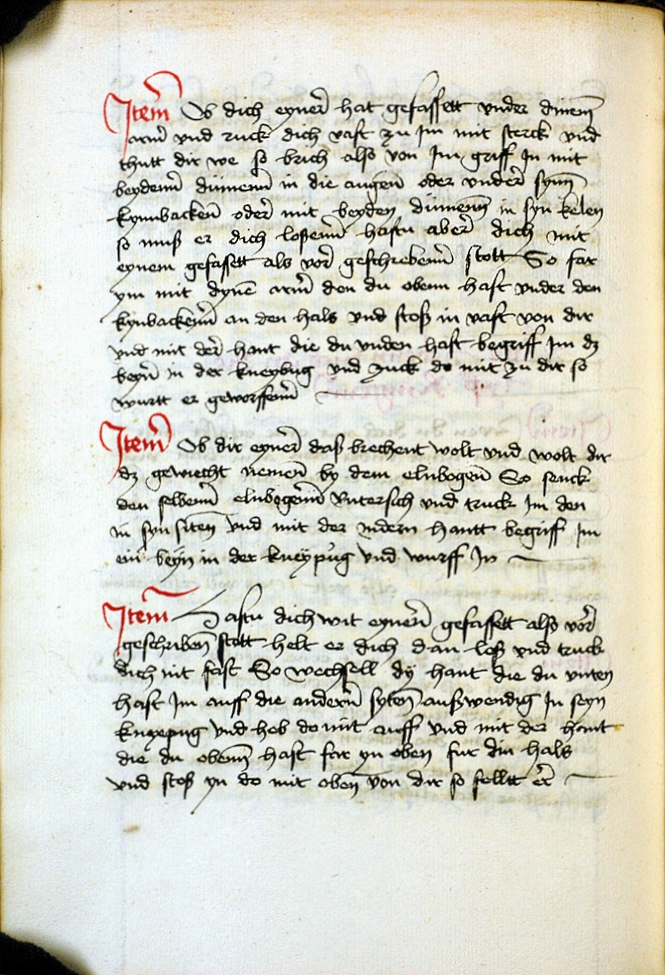 Item Ob dich eyner hat gefassett vnder dinem
arm vnd ruck dich vast zu Im mit sterck vnd
thutt dir we so brich also von Im griff In mit
beydenn dümenn in die augen oder vnder synn
kynnbacken oder mit beyden dümenn in syn kelen
so muß er dich loßenn hastu aber dich mit
eynem gefassett als vor geschrebenn stott So far
ym mit dyne arm den du obenn hast vnder den
kynbackenn an den hals vnd stoß in vast von dir
vnd mit der hant die du vnden hast begriff Im dz
beyn in der kneybug vnd zuck do mit zu dir so
wurtt er geworffenn
Item Ob dir eyner daß brechent wolt vnd wolt dir
dz gewicht nemen by dem elnbogen So senck
den selbenn elnbogenn vntersich vnd truck Im den
in syn siten vnd mit der andern hantt begriff Im
ein beyn in der kneypug vnd wurff In
Item Hastu dich mit eynem gefassett also vor
geschriben stett helt er dich dan loß vnd truck
dich nit fast So wechsell dy hant die du vnten
hast Im auff die andern syten außwendig In seyn
knyepug vnd heb do mit auff vnd mit der hant
die du obenn hast far yn oben fur din hals
vnd stoß yn do mit oben von dir so fellt er